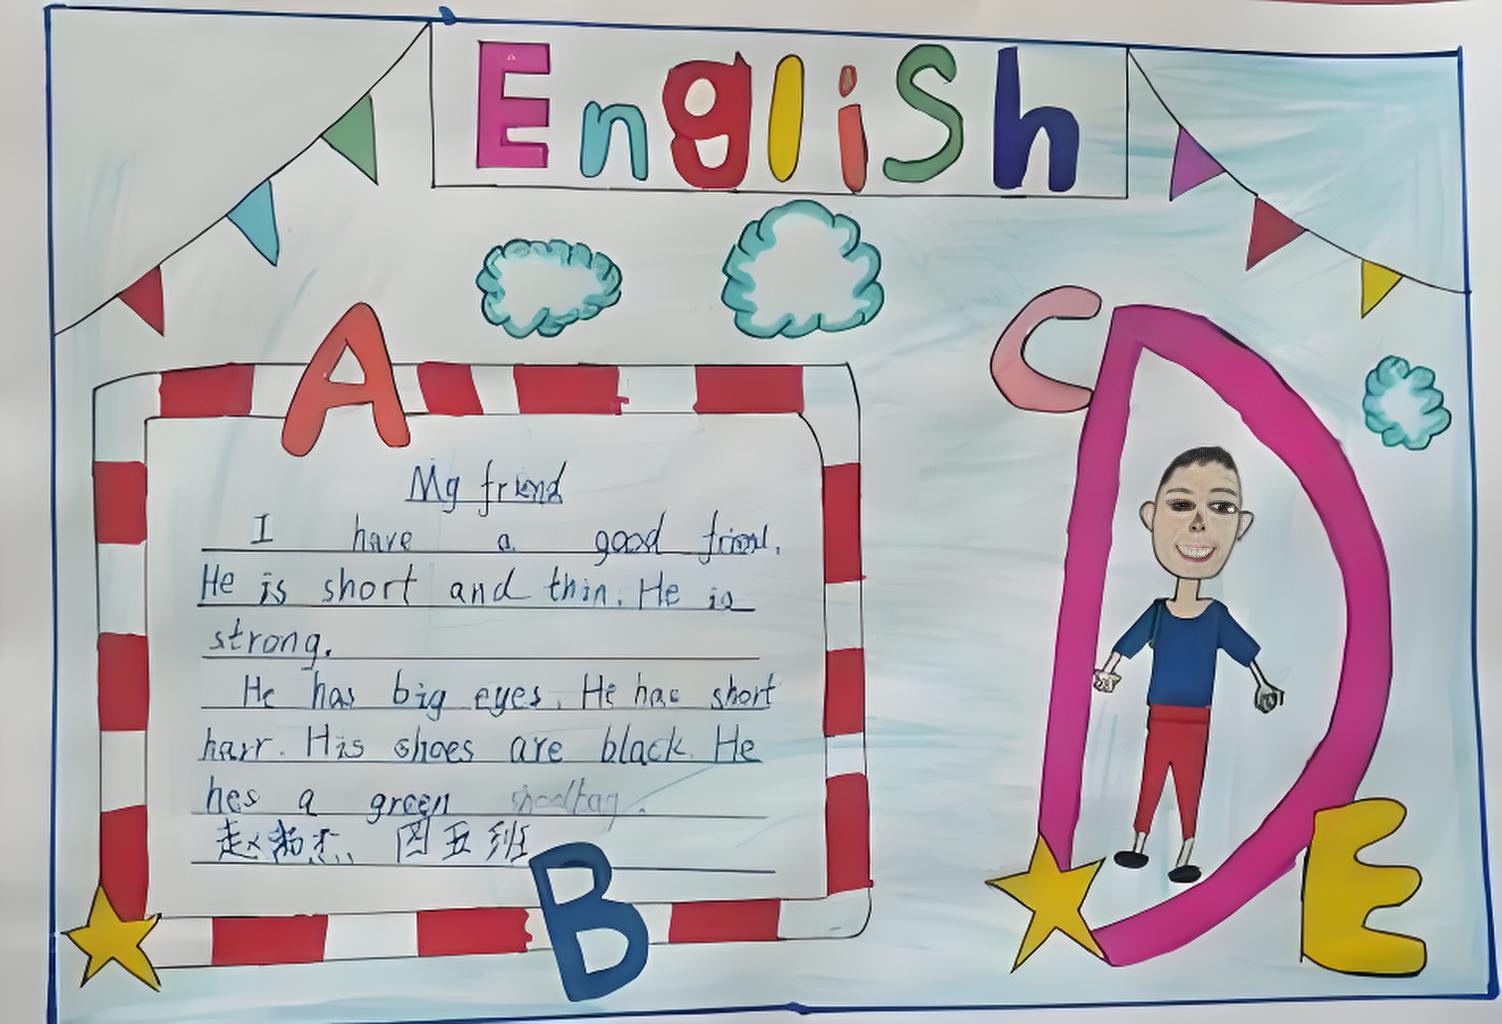 English
A
C
D
My friend
I have a good friend.
He is short and thin. He is
strong.
He has big eyes. He has short
harr. His shoes are black. He
hes a green
赵 杰 四五班
B
E